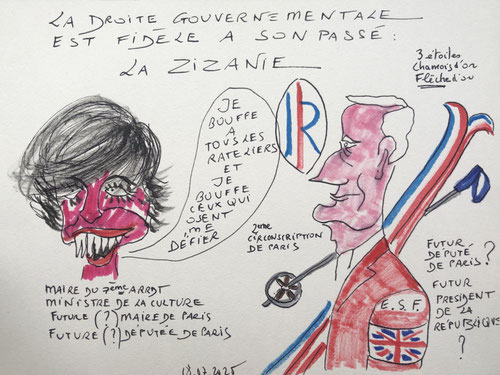 LA DROITE GOUVERNEMENTALE
EST FIDELE A SON PASSÉ :
LA ZIZANIE
3 étoiles
Chamois d'or
Flèche d'or
JE
BOUFFE
A
TOUS LES
RATELIERS
ET
JE
BOUFFE
CEUX QUI
OSENT
ME
DÉFIER
R
2ème
CIRCONSCRIPTION
DE PARIS
MAIRE DU 7ème ARRDT
MINISTRE DE LA CULTURE
FUTURE (?) MAIRE DE PARIS
FUTURE (?) DÉPUTÉE DE PARIS
18.07.2025
E.S.F.
FUTUR
DÉPUTÉ
DE PARIS ?
FUTUR
PRESIDENT
DE LA
RÉPUBLIQUE
?